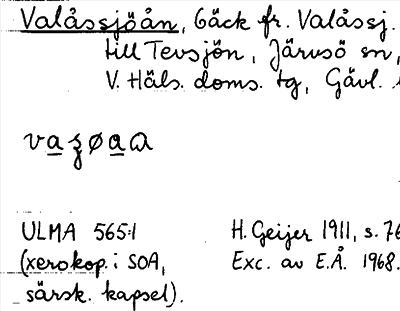 Valåssjöån, bäck fr. Valåssj.
till Tevsjön, Järvsö sn,
V. Häls. doms. tg, Gävl.
ULMA 565:1 H. Geijer 1911, s. 76
(xerokop. i SOA, Exc. av E.Å. 1968.
särsk. kapsel).